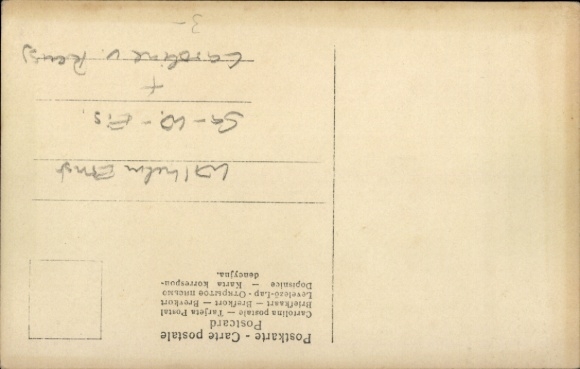 Postkarte - Carte postale
Postcard
Cartolina postale — Tarjeta Postal
Briefkaart — Brefkort — Brevkort
Levelező-Lap - Открытое письмо
Dopisnice — Karta korrespon-
dencyjna.
Wilhelm Ernst
Sa-W.-Eis.
+
Caroline v. Reuß
3-